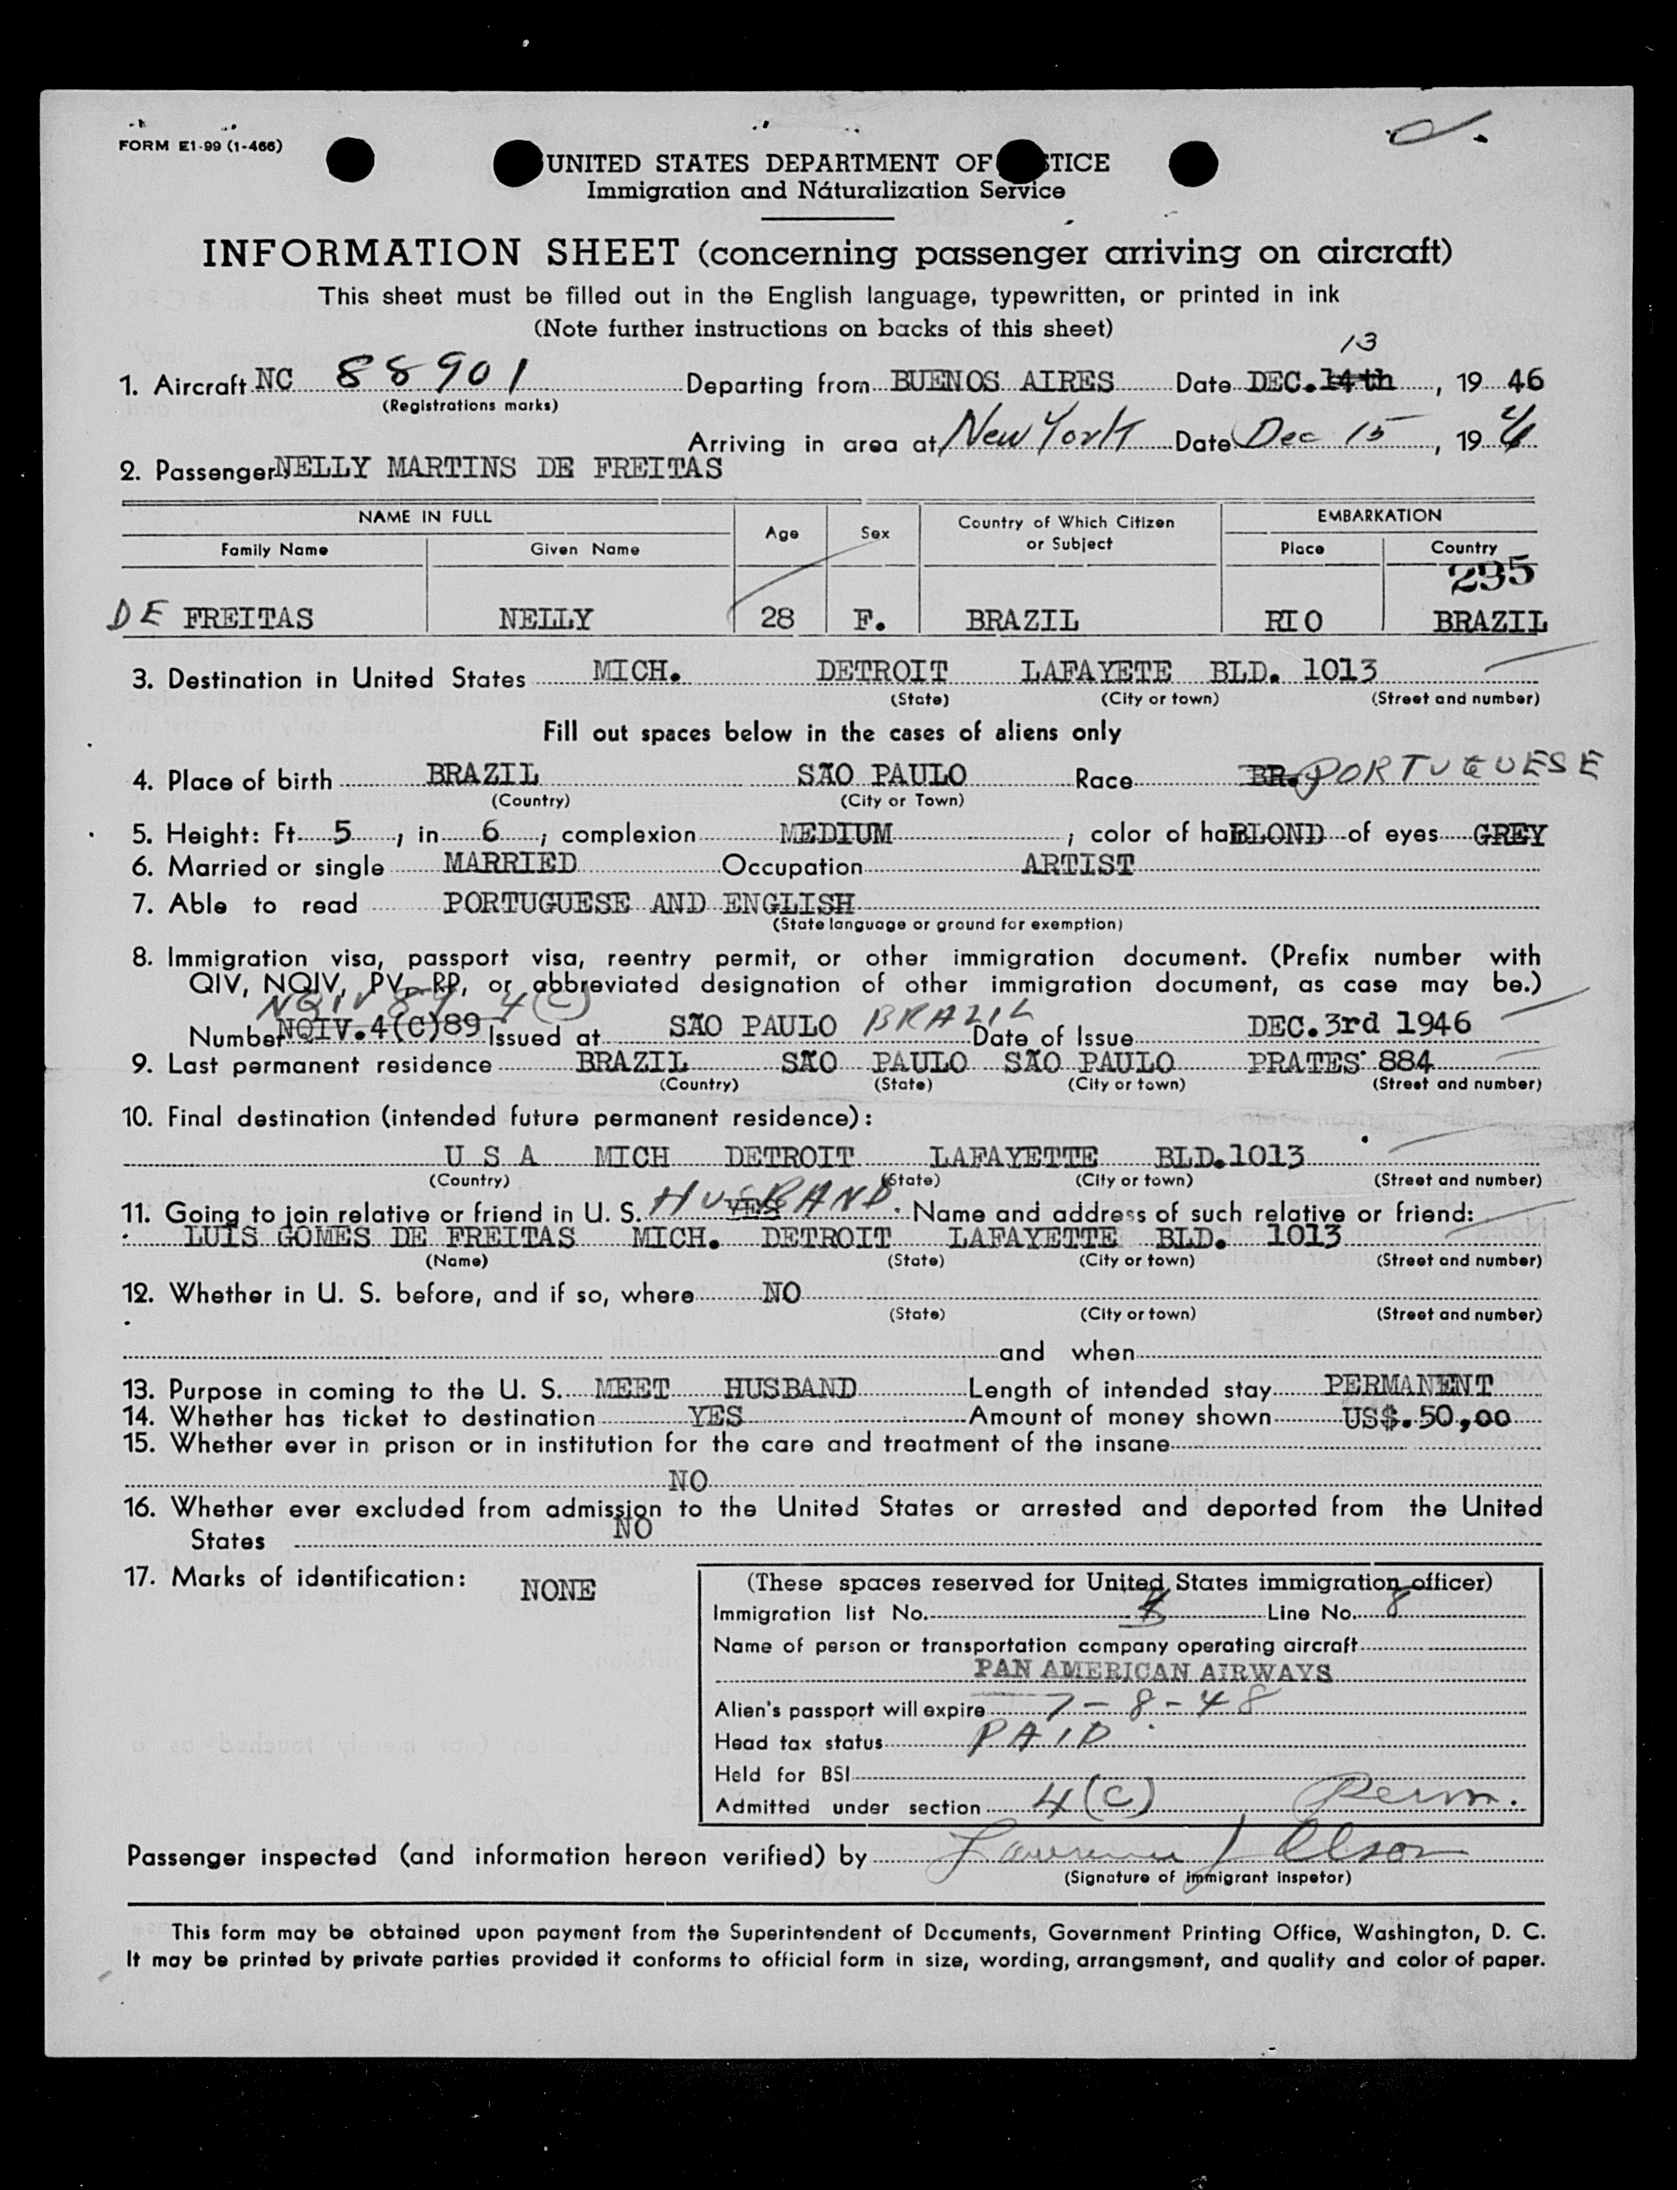 FORM E1-99 (1-466)
UNITED STATES DEPARTMENT OF STICE
Immigration and Naturalization Service
INFORMATION SHEET (concerning passenger arriving on aircraft)
This sheet must be filled out in the English language, typewritten, or printed in ink
(Note further instructions on backs of this sheet)
13
1. Aircraft NC 88901 Departing from BUENOS AIRES Date DEC. 14th, 19 46
(Registrations marks)
Arriving in area at New York Date Dec 15, 19
2. Passenger NELLY MARTINS DE FREITAS
NAME IN FULL Age Sex Country of Which Citizen or Subject EMBARKATION
Family Name Given Name Place Country
295
DE FREITAS NELLY 28 F. BRAZIL RIO BRAZIL
3. Destination in United States MICH. DETROIT LAFAYETE BLD. 1013
(State) (City or town) (Street and number)
Fill out spaces below in the cases of aliens only
4. Place of birth BRAZIL SÃO PAULO Race BR. PORTUGUESE
(Country) (City or Town)
5. Height: Ft. 5, in 6; complexion MEDIUM; color of hai BLOND of eyes GREY
6. Married or single MARRIED Occupation ARTIST
7. Able to read PORTUGUESE AND ENGLISH
(State language or ground for exemption)
8. Immigration visa, passport visa, reentry permit, or other immigration document. (Prefix number with
QIV, NQIV, PV, RP, or abbreviated designation of other immigration document, as case may be.)
NQIV 89 4(C)
Number NQIV.4(C)89 Issued at SÃO PAULO BRAZIL Date of Issue DEC.3rd 1946
9. Last permanent residence BRAZIL SÃO PAULO SÃO PAULO PRATES 884
(Country) (State) (City or town) (Street and number)
10. Final destination (intended future permanent residence):
U S A MICH DETROIT LAFAYETTE BLD.1013
(Country) (State) (City or town) (Street and number)
11. Going to join relative or friend in U. S. YES HUSBAND. Name and address of such relative or friend:
LUIS GOMES DE FREITAS MICH. DETROIT LAFAYETTE BLD. 1013
(Name) (State) (City or town) (Street and number)
12. Whether in U. S. before, and if so, where NO
(State) (City or town) (Street and number)
and when
13. Purpose in coming to the U. S. MEET HUSBAND Length of intended stay PERMANENT
14. Whether has ticket to destination YES Amount of money shown US$.50,00
15. Whether ever in prison or in institution for the care and treatment of the insane
NO
16. Whether ever excluded from admission to the United States or arrested and deported from the United
States NO
17. Marks of identification: NONE
(These spaces reserved for United States immigration officer)
Immigration list No. Line No. 8
Name of person or transportation company operating aircraft
PAN AMERICAN AIRWAYS
Alien's passport will expire 7-8-48
Head tax status PAID
Held for BSI
Admitted under section 4(C) Perm.
Passenger inspected (and information hereon verified) by Lawrence J Olson
(Signature of immigrant inspetor)
This form may be obtained upon payment from the Superintendent of Documents, Government Printing Office, Washington, D. C.
It may be printed by private parties provided it conforms to official form in size, wording, arrangement, and quality and color of paper.